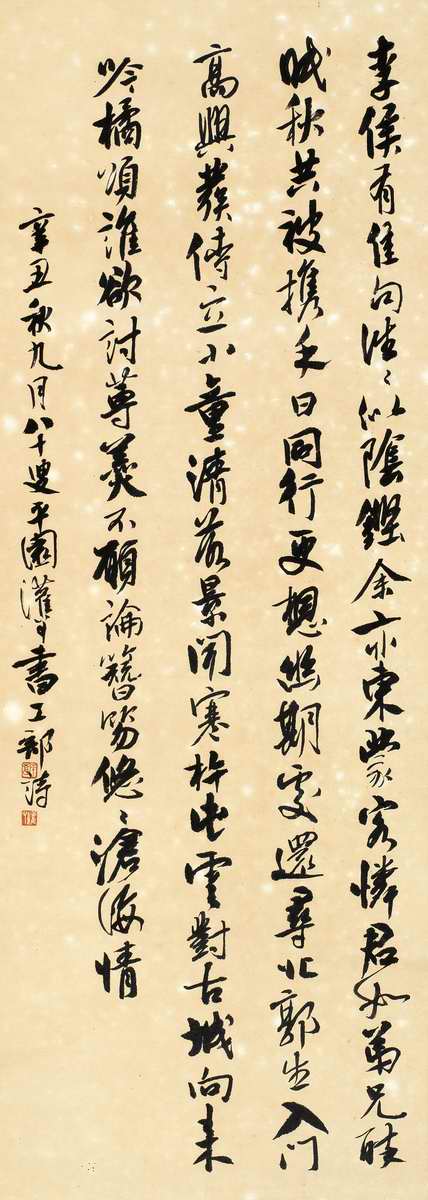 李侯有佳句往〻似陰鏗余亦東蒙客憐君如弟兄醉
眠秋共被攜手日同行更想幽期處還尋北郭生入門
高興發侍立小童清落景聞寒杵屯雲對古城向來
吟橘頌誰欲討蓴羹不願論簪笏悠〻滄海情
辛丑秋九月八十叟平園灌書工部詩